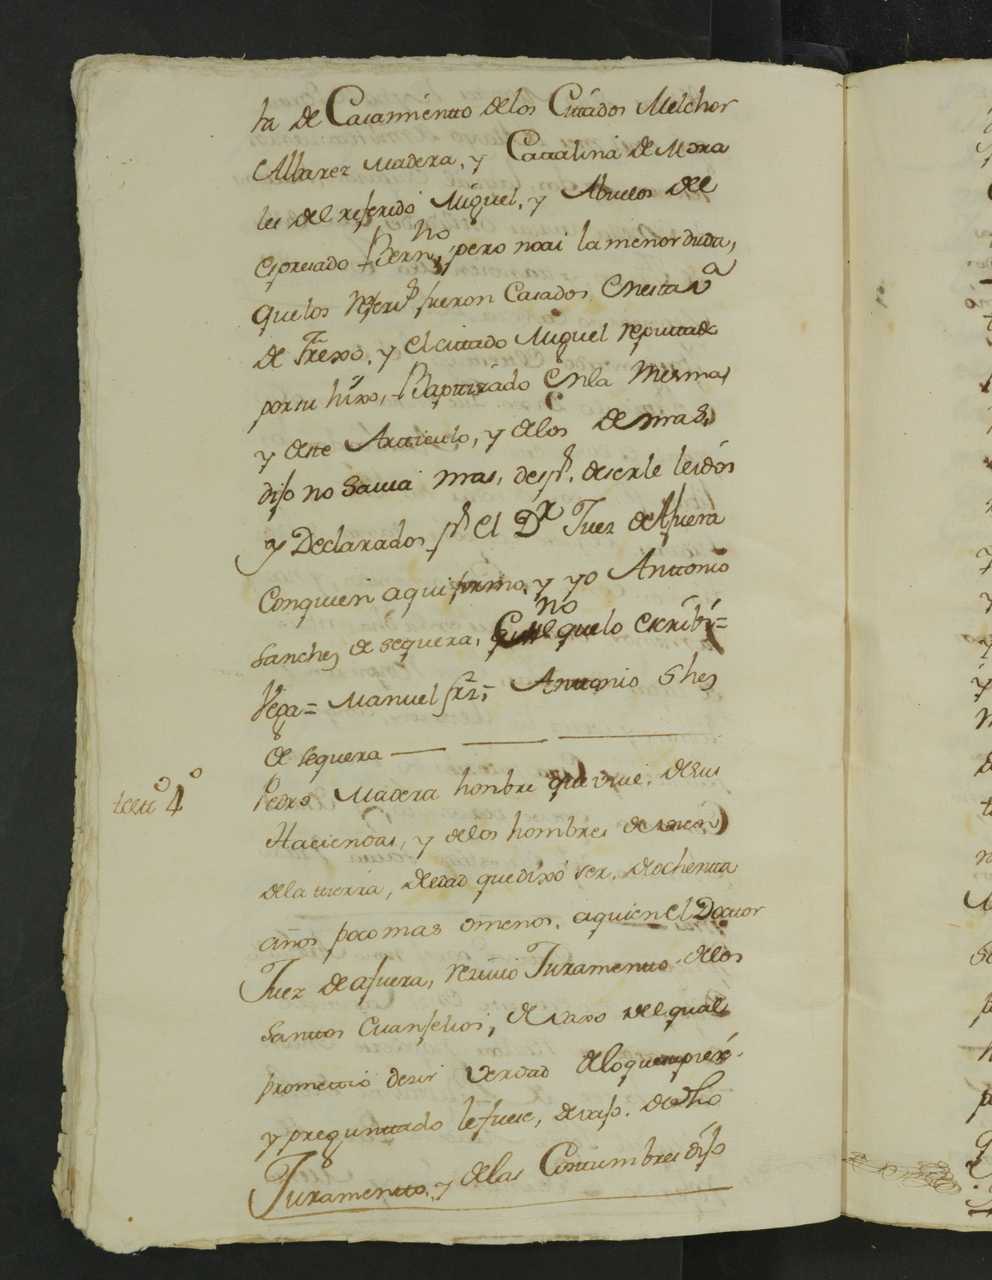 ta de Casamientto de los Cittados Melchor
Albarez Madera, y Cattalina de Mora
les del referido Miguel, y Abuelos del
espresado Bern.no, pero noai la menor duda,
quelos Refer.s fueron Casados enesta v.a
de Frexo, y el cittado Miguel reputtado
por su hixo, Baptizado en la Mesma,
y de este Artticulo, y delos de mas,
dijo no Savia mas, desp.s de serle leidos
y Declarados p.r el D.r Juez de Afuera
Conquien aqui firmo, y yo Anttonio
Sanchez de sequera, no quelo escribi=
Vega= Manuel frz,= Antonio Shez
de sequera
testt.o 4.o
Pedro Madera hombre que vive, desus
Haciendas, y delos hombres de
dela tierra, de edad que dixo ser, de ochenta
años poco mas omenos, aquien el Doctor
Juez de afuera, rezivio Juramentto delos
Santtos Evanjelios, devaxo del qual
promettio desir verdad delo que supiere,
y preguntado le fuese, devajo de dho
Juramentto, y delas Constumbres dijo